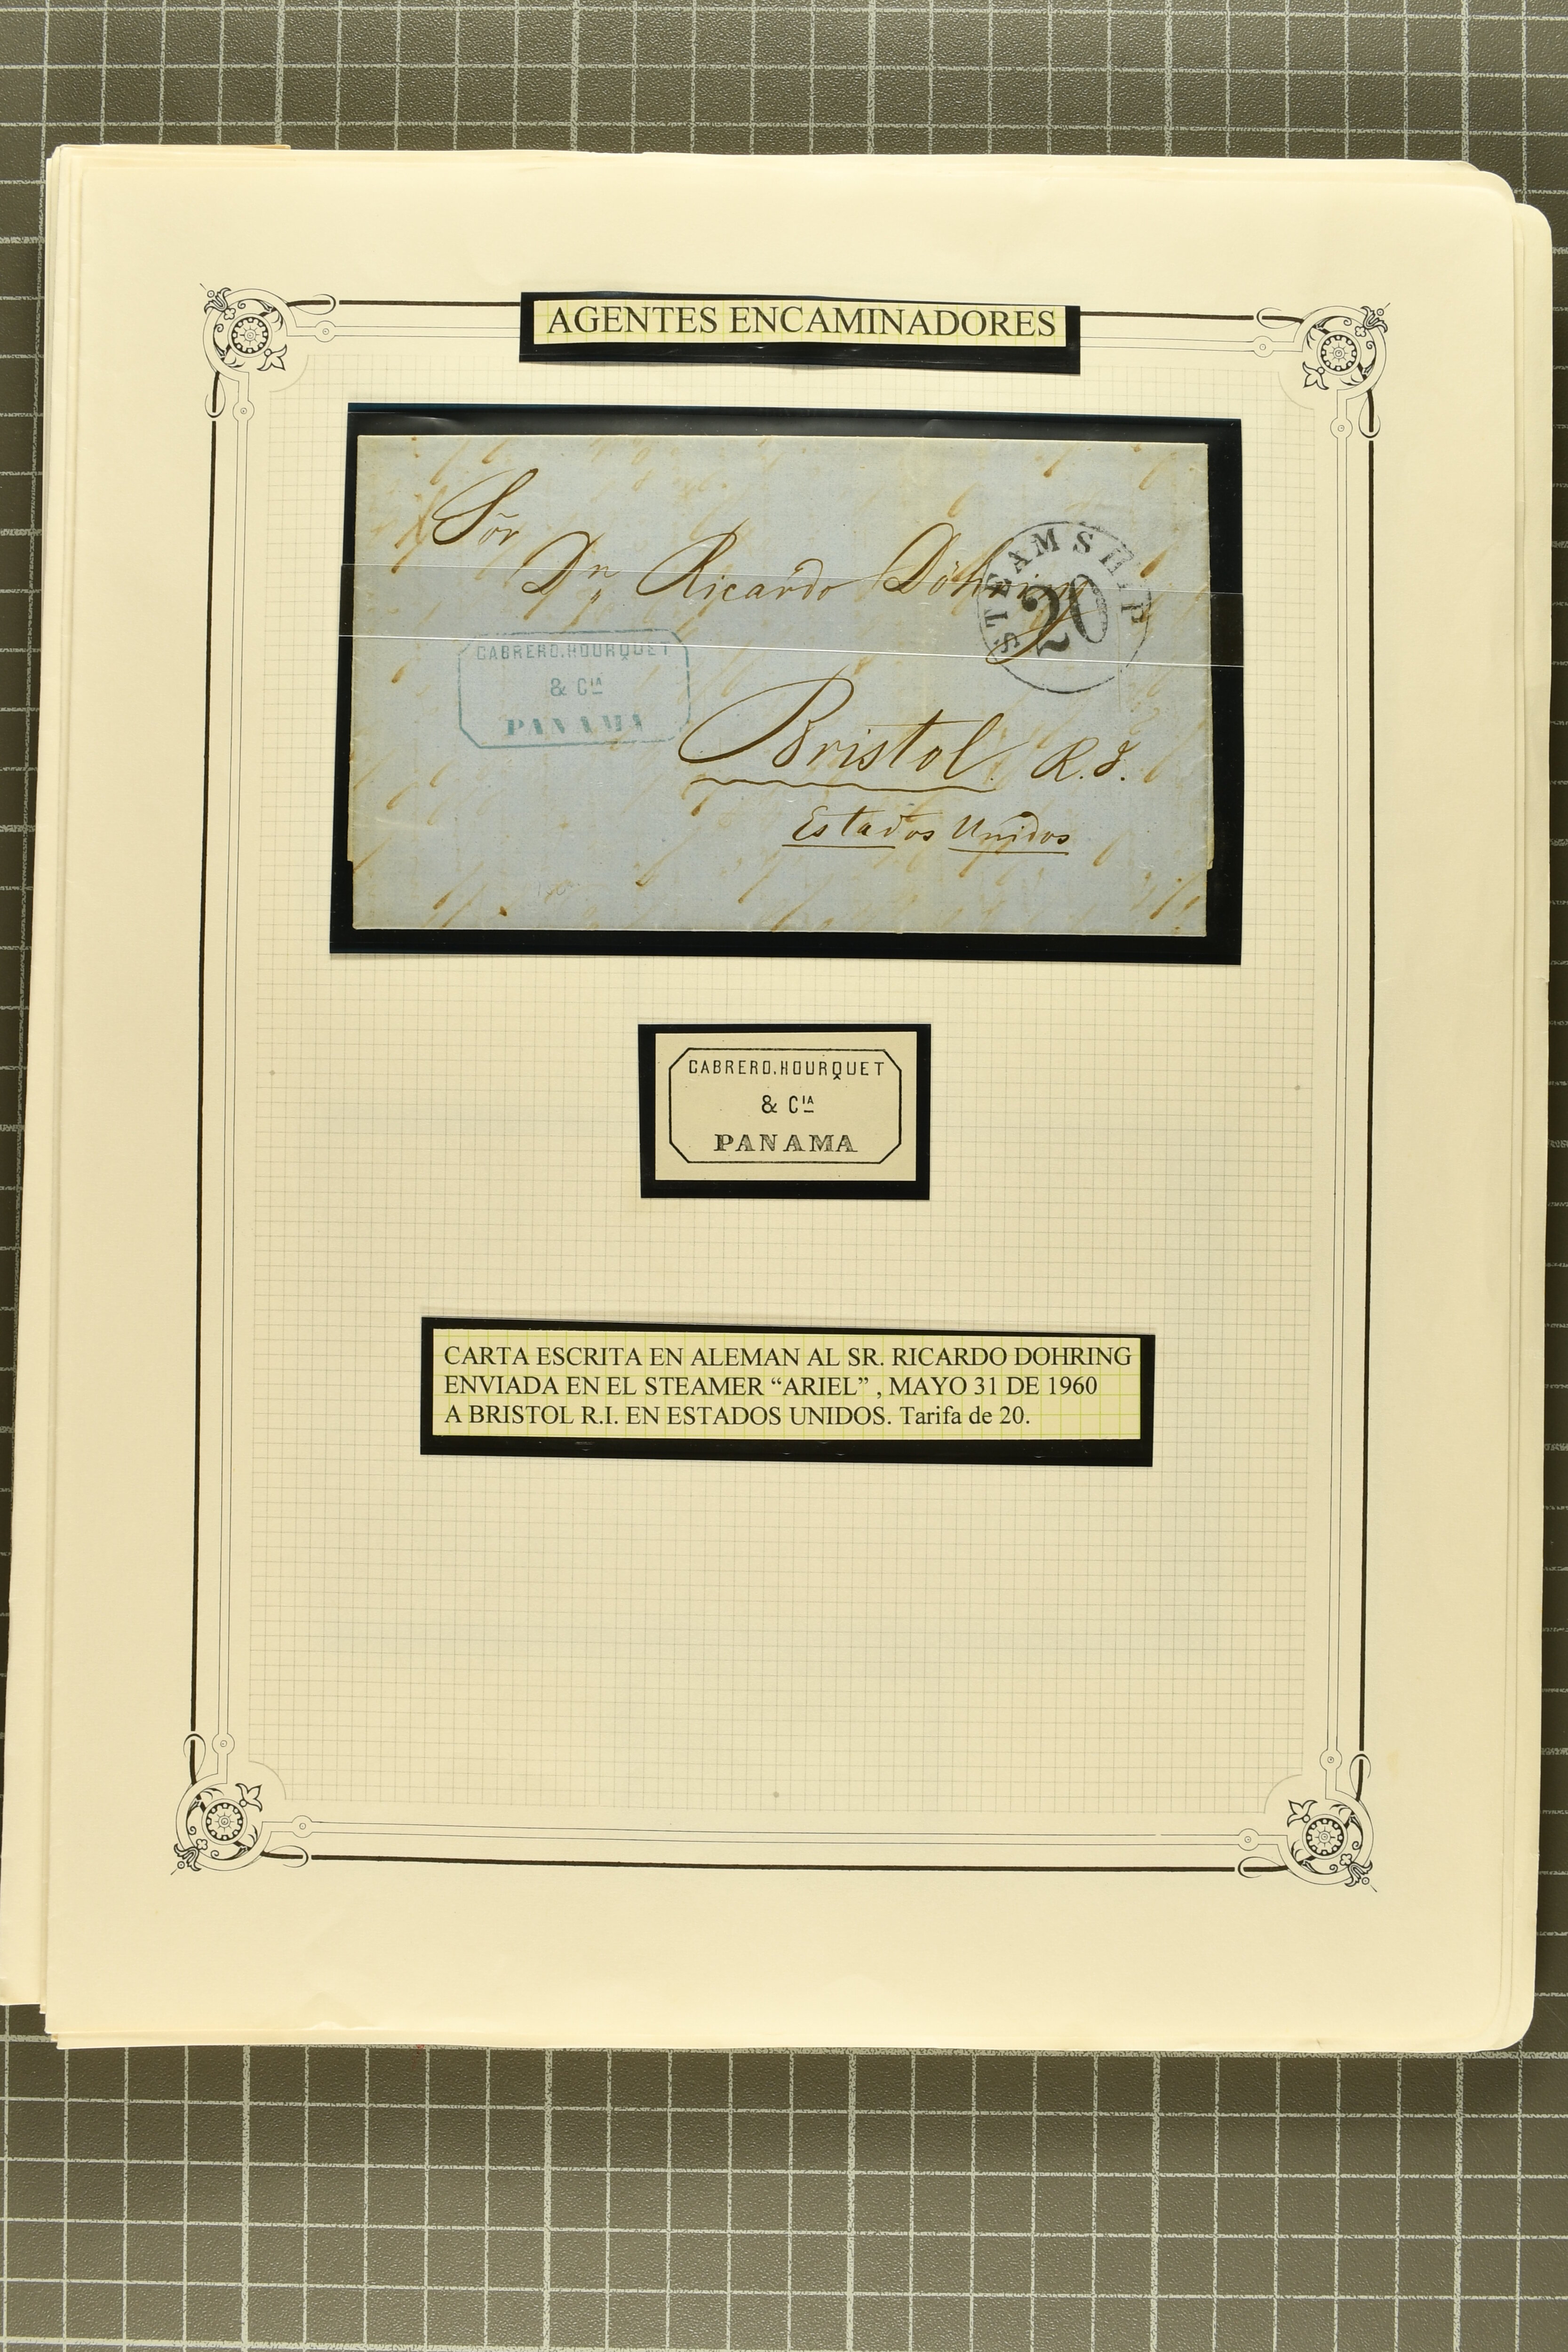 AGENTES ENCAMINADORES
Sõr
Dn Ricardo Döhring
STEAMSHIP
20
CABRERO, HOURQUET
& CIA
PANAMA
Bristol R.I.
Estados Unidos
CABRERO, HOURQUET
& CIA
PANAMA
CARTA ESCRITA EN ALEMAN AL SR. RICARDO DOHRING
ENVIADA EN EL STEAMER “ARIEL” , MAYO 31 DE 1960
A BRISTOL R.I. EN ESTADOS UNIDOS. Tarifa de 20.